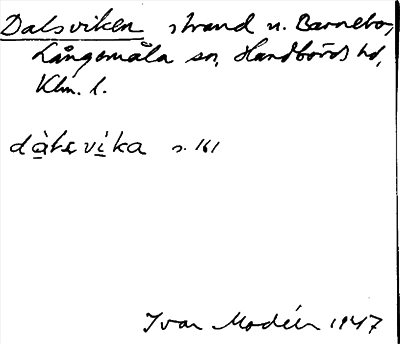 Dalsviken strand n. Barnebo,
Långemåla sn, Handbörds hd,
Klm. l.
dàlsvika s. 161
Ivar Modéer 1947